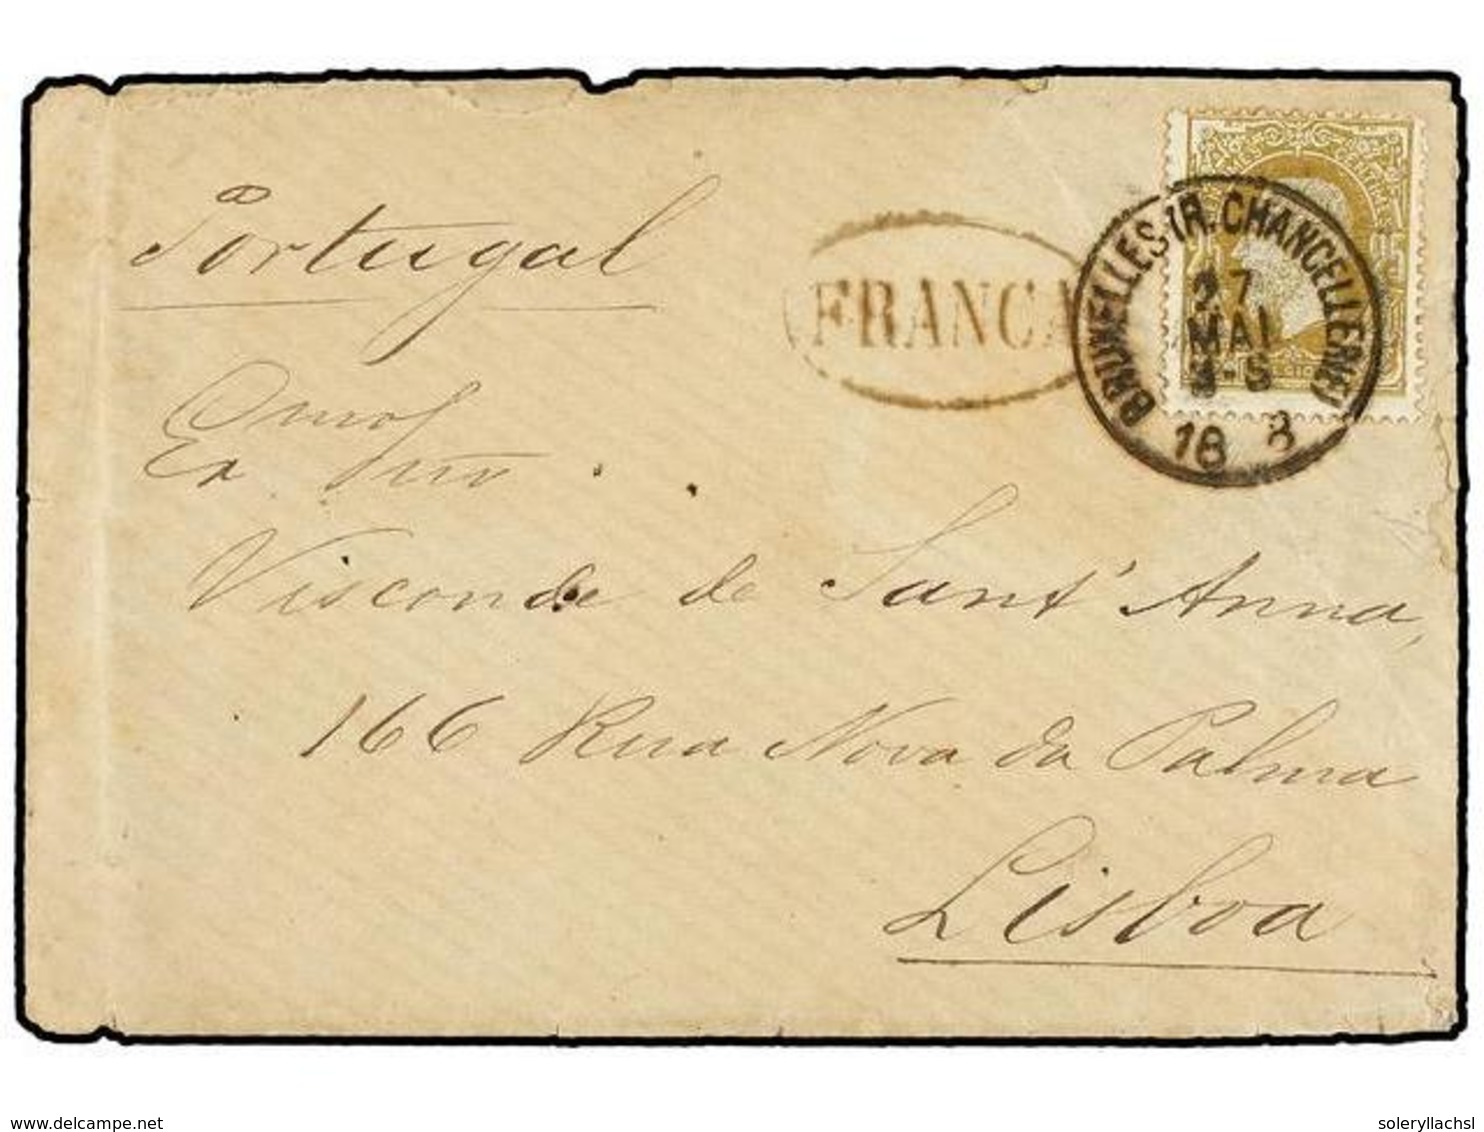 Portugal
FRANCA
BRUXELLES (R. CHANCELLERIE)
27
MAI
3-S
18 8
25
Exmo Snr
Visconde de Sant'Anna,
166 Rua Nova da Palma
Lisboa
www.delcampe.net
soleryllachsl